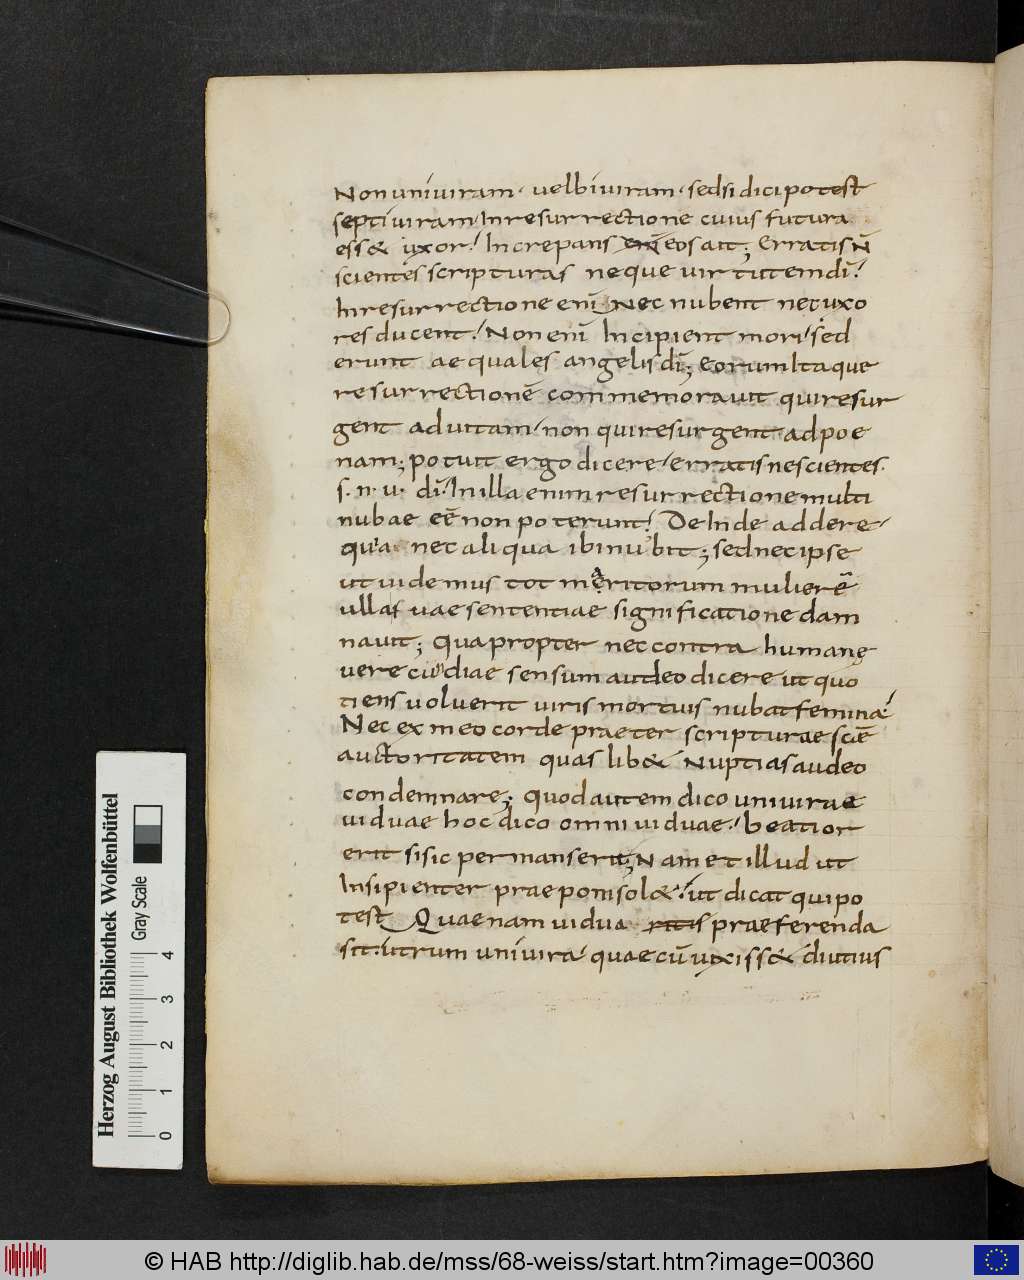 Non uniuiram· uel biuiram· sed si dici potest
septiuiram· In resurrectione cuius futura
ess& uxor· Increpans eos ait; Erratis N̄
scientes scripturas neque uirtutem dī·
In resurrectione enī· Nec nubent nec uxo
res ducent· Non enī Incipient mori· sed
erunt aequales angelis dī; Eorum Itaque
resurrectionē commemorauit qui resur
gent ad uitam· non qui resurgent ad poe
nam; potuit ergo dicere· erratis nescientes·
s· n· u· dī· In illa enim resurrectione multi
nubae eē non poterunt· De Inde addere·
quia nec aliqua ibi nubit; sed nec ipse
ut uidemus tot maritorum mulierē
ullaf uae sententiae significatione dam
nauit; Qua propter nec contra humanę
verecundiae sensum audeo dicere ut quo
tiens uoluerit uiris mortuis nubat femina·
Nec ex meo corde praeter scripturae scīē
auctoritatem quas lib& Nuptias audeo
condemnare; quod autem dico uniuirae
uiduae hoc dico omni uiduae· beatior
erit si sic permanserit; Nam et illud ut
Insipienter prae poni sol&· ut dicat qui po
test Quaenam uidua praeferenda
sit· utrum uniuira· quae cū uixiss& diutius
Herzog August Bibliothek Wolfenbüttel
Gray Scale
0 1 2 3 4
© HAB http://diglib.hab.de/mss/68-weiss/start.htm?image=00360